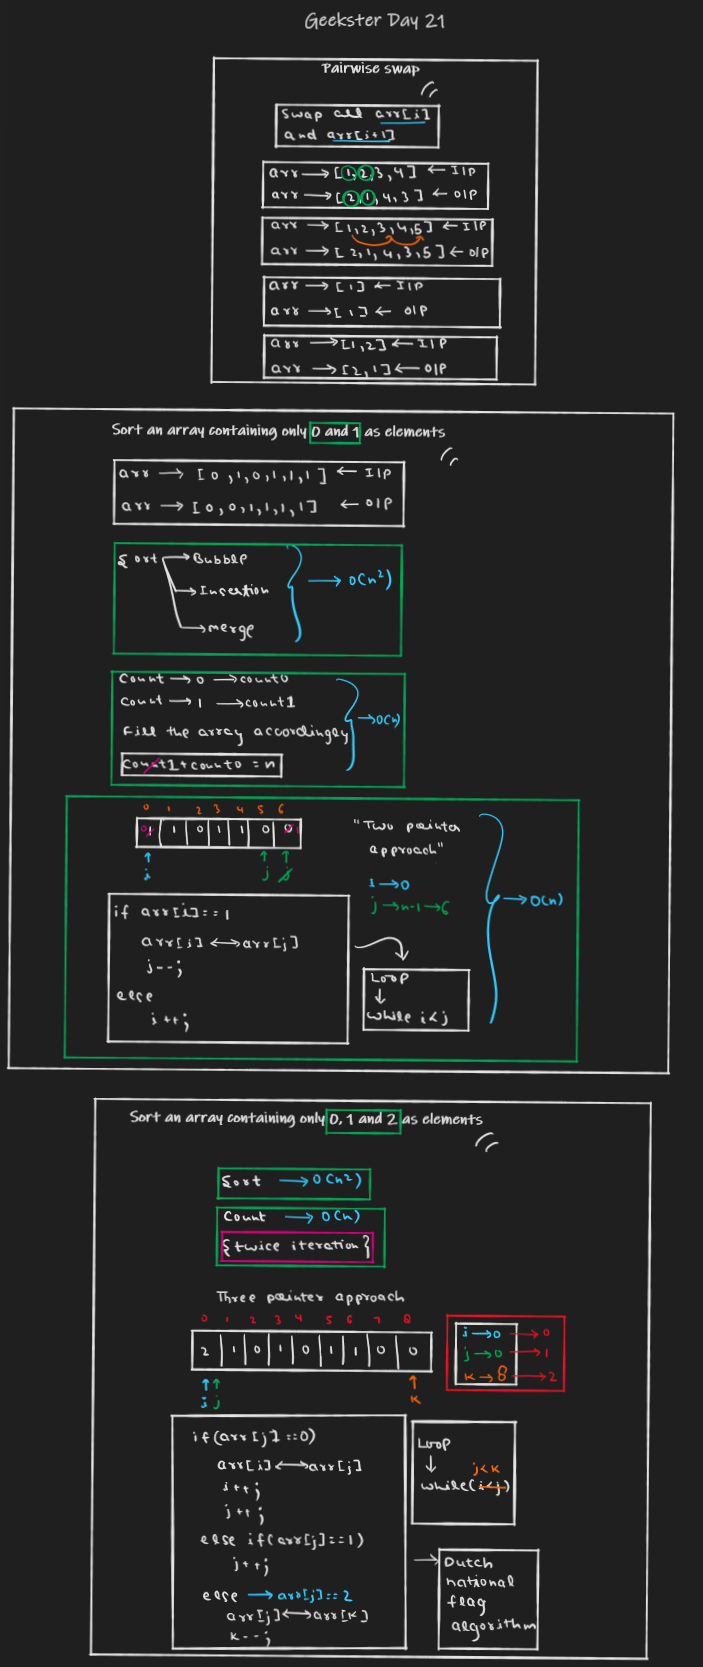 Geekster Day 21
Pairwise swap
Swap all arr[i]
and arr[i+1]
arr → [1,2,3,4] ← I|P
arr → [2,1,4,3] ← O|P
arr → [1,2,3,4,5] ← I|P
arr → [2,1,4,3,5] ← O|P
arr → [1] ← I|P
arr → [1] ← O|P
arr → [1,2] ← I|P
arr → [2,1] ← O|P
Sort an array containing only 0 and 1 as elements
arr → [0,1,0,1,1,1] ← I|P
arr → [0,0,1,1,1,1] ← O|P
Sort → Bubble
→ Insertion
→ merge
→ O(n²)
Count → 0 → count0
Count → 1 → count1
Fill the array accordingly
count1+count0 = n
→ O(n)
0 1 2 3 4 5 6
1 1 0 1 1 0 0
i j j
"Two pointer
approach"
i → 0
j → n-1 → 6
→ O(n)
if arr[i]==1
arr[i] ↔ arr[j]
j--;
else
i++;
Loop
↓
while i<j
Sort an array containing only 0, 1 and 2 as elements
Sort → O(n²)
Count → O(n)
{twice iteration}
Three pointer approach
0 1 2 3 4 5 6 7 8
2 1 0 1 0 1 1 0 0
i j k
i → 0 → 0
j → 0 → 1
k → 8 → 2
if(arr[j]==0)
arr[i] ↔ arr[j]
i++;
j++;
else if(arr[j]==1)
j++;
else → arr[j]==2
arr[j] ↔ arr[k]
k--;
Loop
↓
j<k
while(i<j)
→ Dutch
national
flag
algorithm